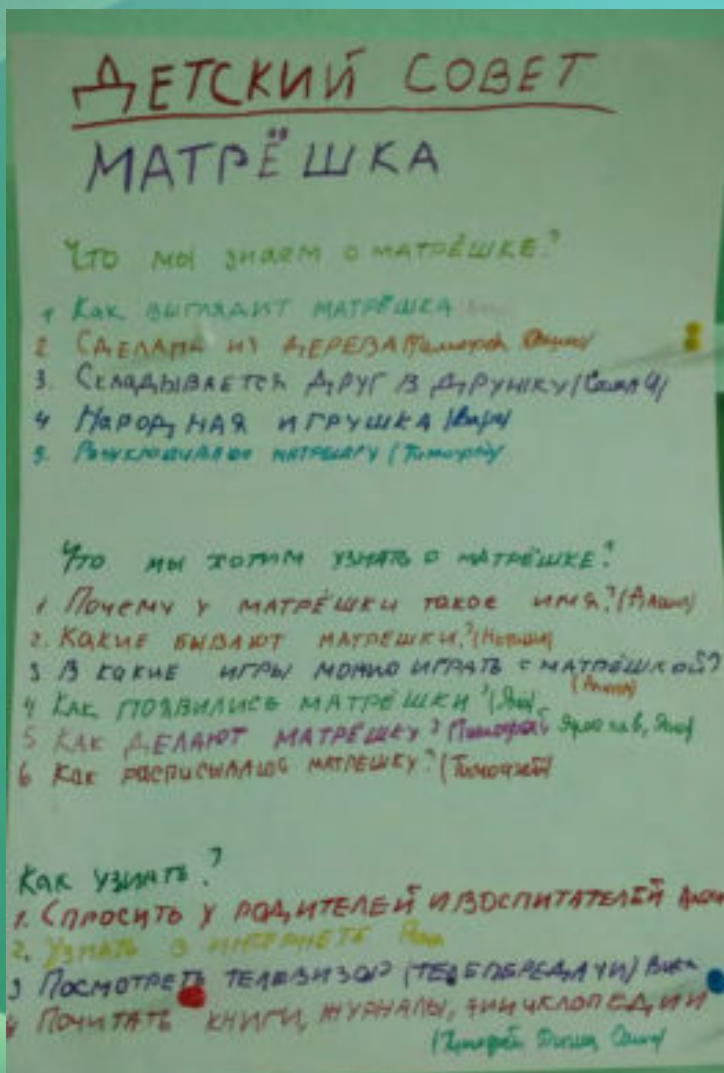 ДЕТСКИЙ СОВЕТ
МАТРЁШКА
Что мы знаем о матрёшке?
1 Как выглядит матрёшка
2 Сделана из дерева
3. Складывается друг в дружку (Саша
4 Народная игрушка (Варя)
5. матрешку (Тимофей)
Что мы хотим узнать о матрёшке?
1 Почему у матрёшки такое имя?
2. Какие бывают матрешки?
3 В какие игры можно играть с матрёшкой?
4 Как появились матрёшки? (Яна)
5 Как делают матрёшку? (Тимофей, Ярослав, Яна)
6 Как расписывают матрешку? (Тимофей)
Как узнать?
1. Спросить у родителей и воспитателей
2. Узнать в интернете
3 Посмотреть телевизор (телепередачи) Вика
4 Почитать книги, журналы, энциклопедии
(Тимофей Саша)